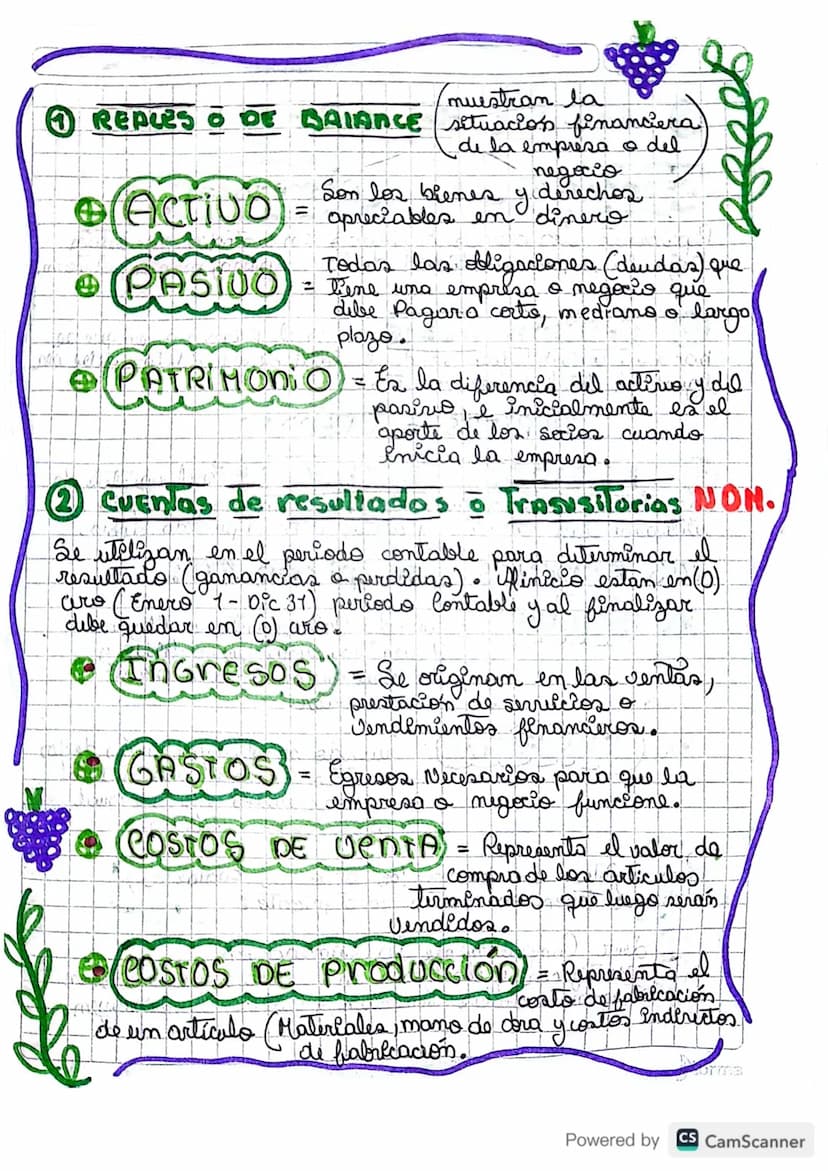 ① REALES O DE BALANCE (muestran la
situación financiera
de la empresa o del
negocio)
ACTIVO = Son los bienes y derechos
apreciables en dinero
PASIVO = Todas las obligaciones (deudas) que
tiene una empresa o negocio que
debe Pagar a corto, mediano o largo
plazo.
PATRIMONIO = Es la diferencia del activo y del
pasivo, e inicialmente es el
aporte de los socios cuando
inicia la empresa.
② CUENTAS de resultados o Transsitorias NON.
Se utilizan en el periodo contable para determinar el
resultado (ganancias o perdidas). Al inicio estan en (0)
cero (Enero 1 - Dic 31) periodo Contable y al finalizar
debe quedar en (0) cero.
INGRESOS = Se originan en las ventas,
prestación de servicios o
rendimientos financieros.
GASTOS = Egresos Necesarios para que la
empresa o negocio funcione.
COSTOS DE VENTA = Representa el valor de
compra de los articulos
terminados que luego serán
vendidos.
COSTOS DE PRODUCCIÓN = Representa el
costo de fabricación
de un artículo (Materiales, mano de obra y costos indirectos
de fabricación.
norma
Powered by CS CamScanner